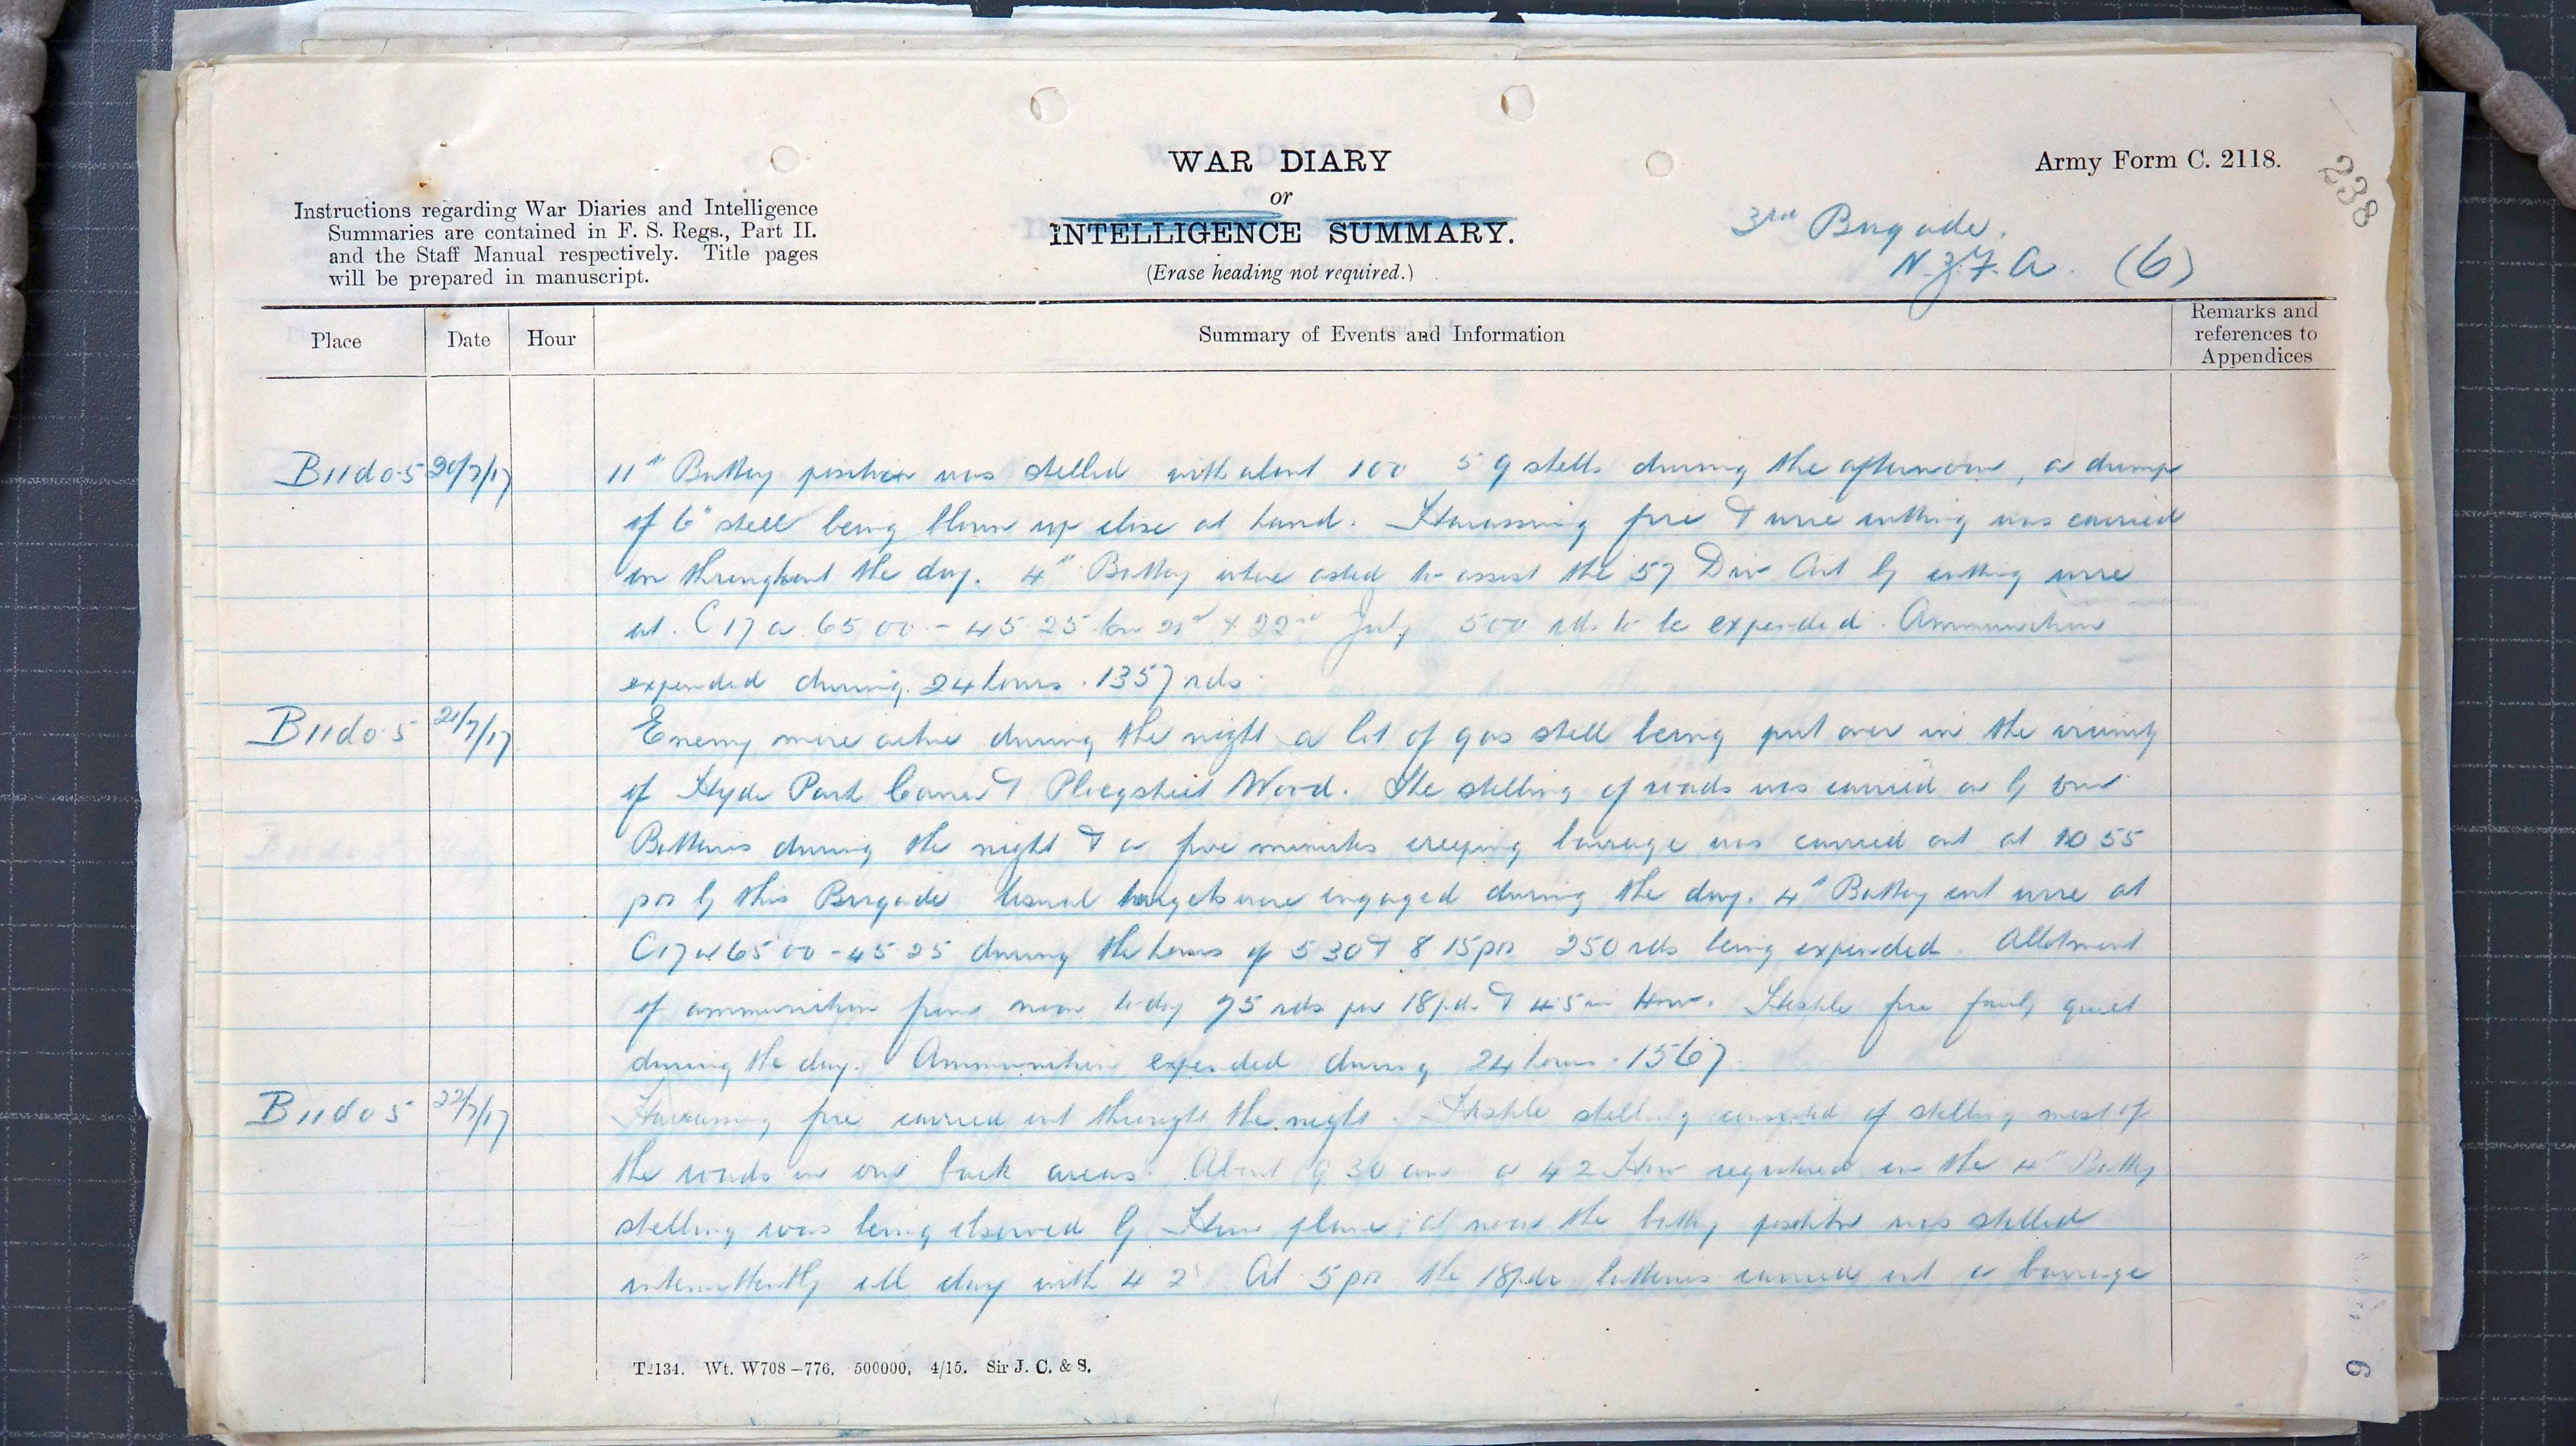 WAR DIARY
or
INTELLIGENCE SUMMARY.
(Erase heading not required.)
Army Form C. 2118.
238
Instructions regarding War Diaries and Intelligence
Summaries are contained in F. S. Regs., Part II.
and the Staff Manual respectively. Title pages
will be prepared in manuscript.
3rd Brigade.
N.Z.F.A. (6)
Place
Date
Hour
Summary of Events and Information
Remarks and
references to
Appendices
B11d0·5 20/7/17 11th Battery position was shelled with about 100 5 9 shells during the afternoon, a dump
of 6" shell being blown up close at hand. Harassing fire & wire cutting was carried
on throughout the day. 4th Battery were asked to assist the 57 Div Art by cutting wire
at. C17a 65 00 - 45 25 on 21st & 22nd July 500 rds to be expended. Ammunition
expended during 24 hours. 1357 rds.
B11d0·5 21/7/17 Enemy more active during the night a lot of gas shell being put over in the vicinity
of Hyde Park Corner & Ploegsteert Wood. The shelling of roads was carried on by our
Batteries during the night & a five minutes creeping barrage was carried out at 10 55
pm by this Brigade Usual targets were engaged during the day. 4th Battery cut wire at
C17a 65 00 - 45 25 during the hours of 5 30 & 8 15pm 250 rds being expended. Allotment
of ammunition from noon to-day 75 rds per 18pdr & 4 5 in How. Hostile fire fairly quiet
during the day. Ammunition expended during 24 hours. 1567.
B11d0 5 22/7/17 Harassing fire carried out through the night. Hostile shelling consisted of shelling most of
the roads in our back areas. About 9 30 am a 4 2 How registered on the 4th Battery
shelling was being observed by Hun plane, at noon the battery position was shelled
intermittently all day with 4 2" At 5 pm the 18pdr batteries carried out a barrage
T2134. Wt. W708-776. 500000. 4/15. Sir J. C. & S.
6